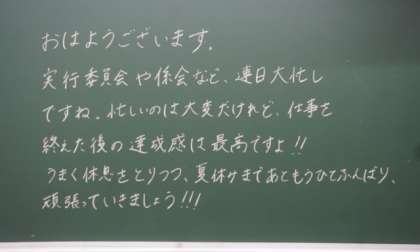 おはようございます.
実行委員会や係会など、連日大忙し
ですね。忙しいのは大変だけれど、仕事を
終えた後の達成感は最高ですよ!!
うまく休息をとりつつ、夏休みまであともうひとふんばり、
頑張っていきましょう!!!